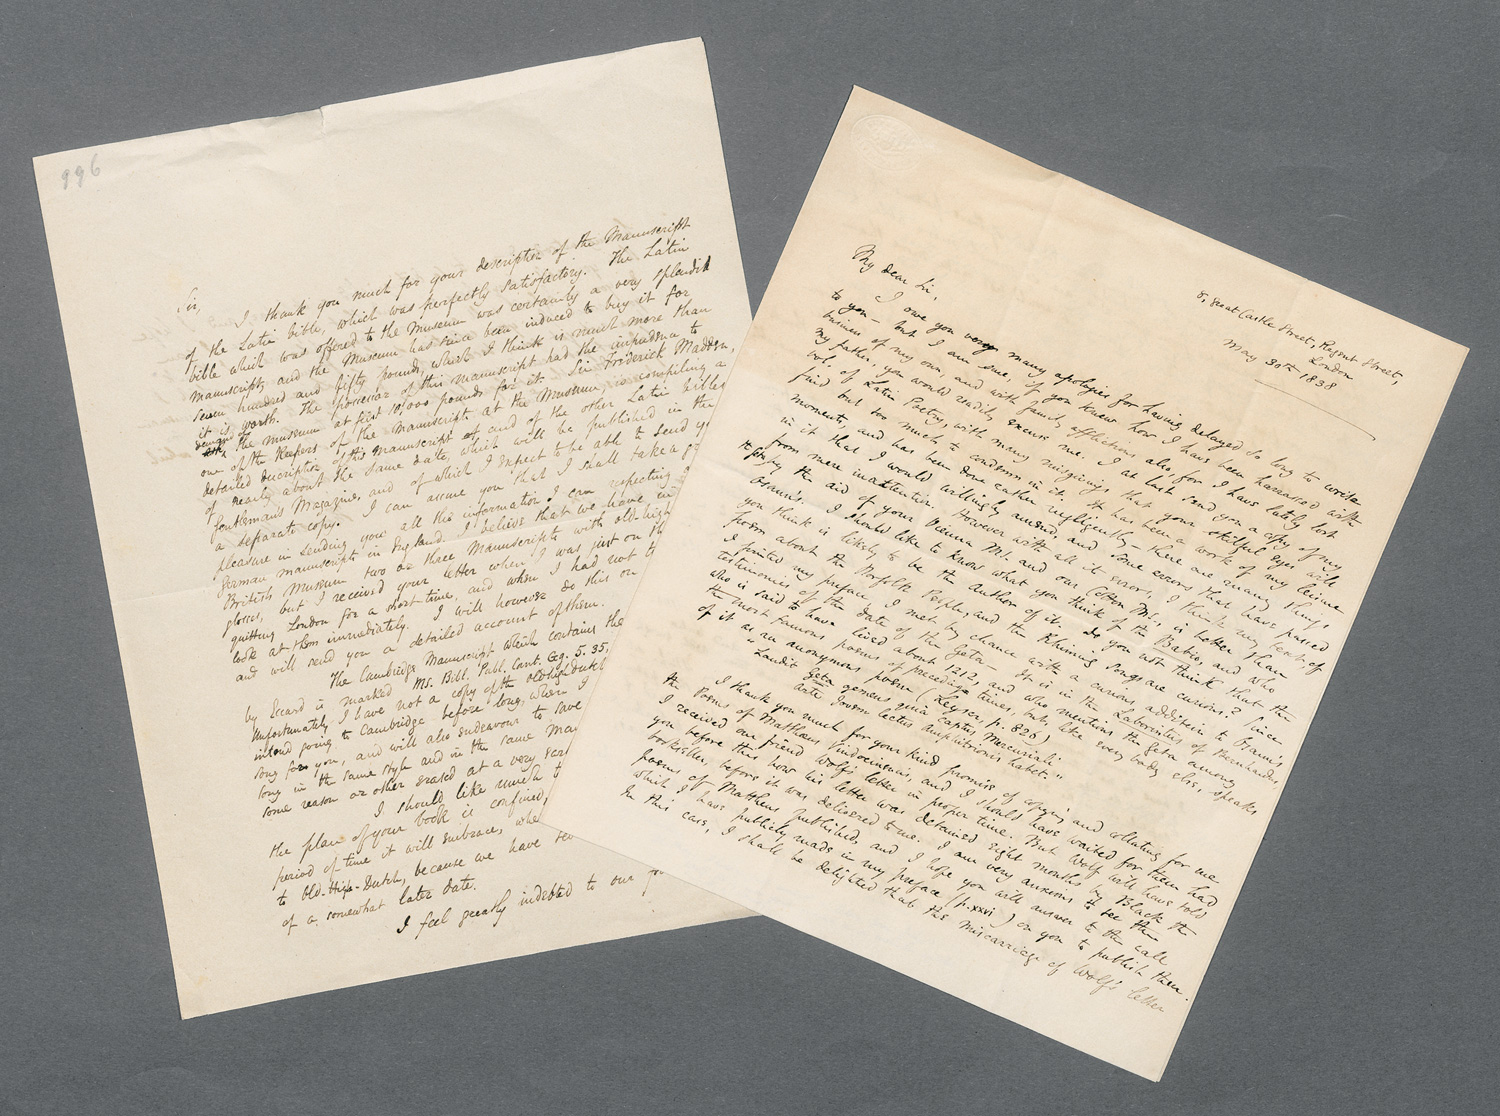 996
Sir,
I thank you much for your description of the Manuscript
of the Latin bible, which was perfectly satisfactory. The Latin
bible which was offered to the Museum was certainly a very splendid
manuscript, and the Museum has since been induced to buy it for
seven hundred and fifty pounds, which I think is much more than
it is worth. The possessor of this manuscript had the impudence to
demand of the Museum at first 10,000 pounds for it. Sir Frederick Madden,
one of the Keepers of the manuscripts at the Museum, is compiling a
detailed description of this manuscript and of the other Latin bibles
of nearly about the same date, which will be published in the
Gentleman's Magazine, and of which I expect to be able to send you
a separate copy.
I can assure you that I shall take a
pleasure in sending you all the information I can respecting
German manuscripts in England. I believe that we have in
British Museum two or three Manuscripts with old-high
glosses, but I received your letter when I was just on the
quitting London for a short time, and when I had not
look at them immediately. I will however do this on
and will send you a detailed account of them.
The Cambridge Manuscript which contains the
by Eccard is marked Ms. Bibl. Publ. Cant. Gg. 5. 35,
Unfortunately I have not a copy of the old high dutch
intend going to Cambridge before long, when I
song for you, and will also endeavour to save
song in the same style and in the same
some reason or other erased at a very
I should like much
the plan of your book is confined,
period of time it will embrace,
to Old-High-Dutch, because we have
of a somewhat later date.
I feel greatly indebted to our
8, Great Castle Street, Regent Street,
London
May 30th 1838
My dear Sir,
I owe you very many apologies for having delayed so long to write
to you – but I am sure, if you knew how I have been harrassed with
business of my own, and with family afflictions also, for I have lately lost
my father, you would readily excuse me. I at last send you a copy of my
vol. of Latin Poetry, with many misgivings that your skilful eyes will
find but too much to condemn in it. It has been a work of my leisure
moments, and has been done rather negligently – there are many things
in it that I would willingly amend, and some errors that have passed
from mere inattention. However with all its errors, I think my text, of
the Geta, by the aid of your Vienna MS. and our Cotton MS., is better than
Osann's. I should like to know what you think of the Babio, and who
you think is likely to be the author of it. Do you not think that the
poem about the Norfolk People, and the Rhiming songs are curious? Since
I printed my preface I met by chance with a curious addition to Osann's
testimonies of the date of the Geta – It is in the Laborintus of Eberhardus,
who is said to have lived about 1212, and who mentions the Geta among
the most famous poems of preceding times, but, like every body else, speaks
of it as an anonymous poem (Leyser, p. 826)
"Laudit Geta gemens quia captus Mercuriali
Arte Jovem lectus amphitrionis habet."
I thank you much for your kind promise of copying and collating for me
the Poems of Matthæus Vindocinensis, and I should have waited for them had
I received our friend Wolf's letter in proper time. But Wolf will have told
you before this how his letter was detained eight months by Black the
bookseller, before it was delivered to me. I am very anxious to see the
poems of Matthæus published, and I hope you will answer to the call
which I have publicly made in my preface (p. xxvi) on you to publish them.
In this case, I shall be delighted that the miscarriage of Wolf's letter